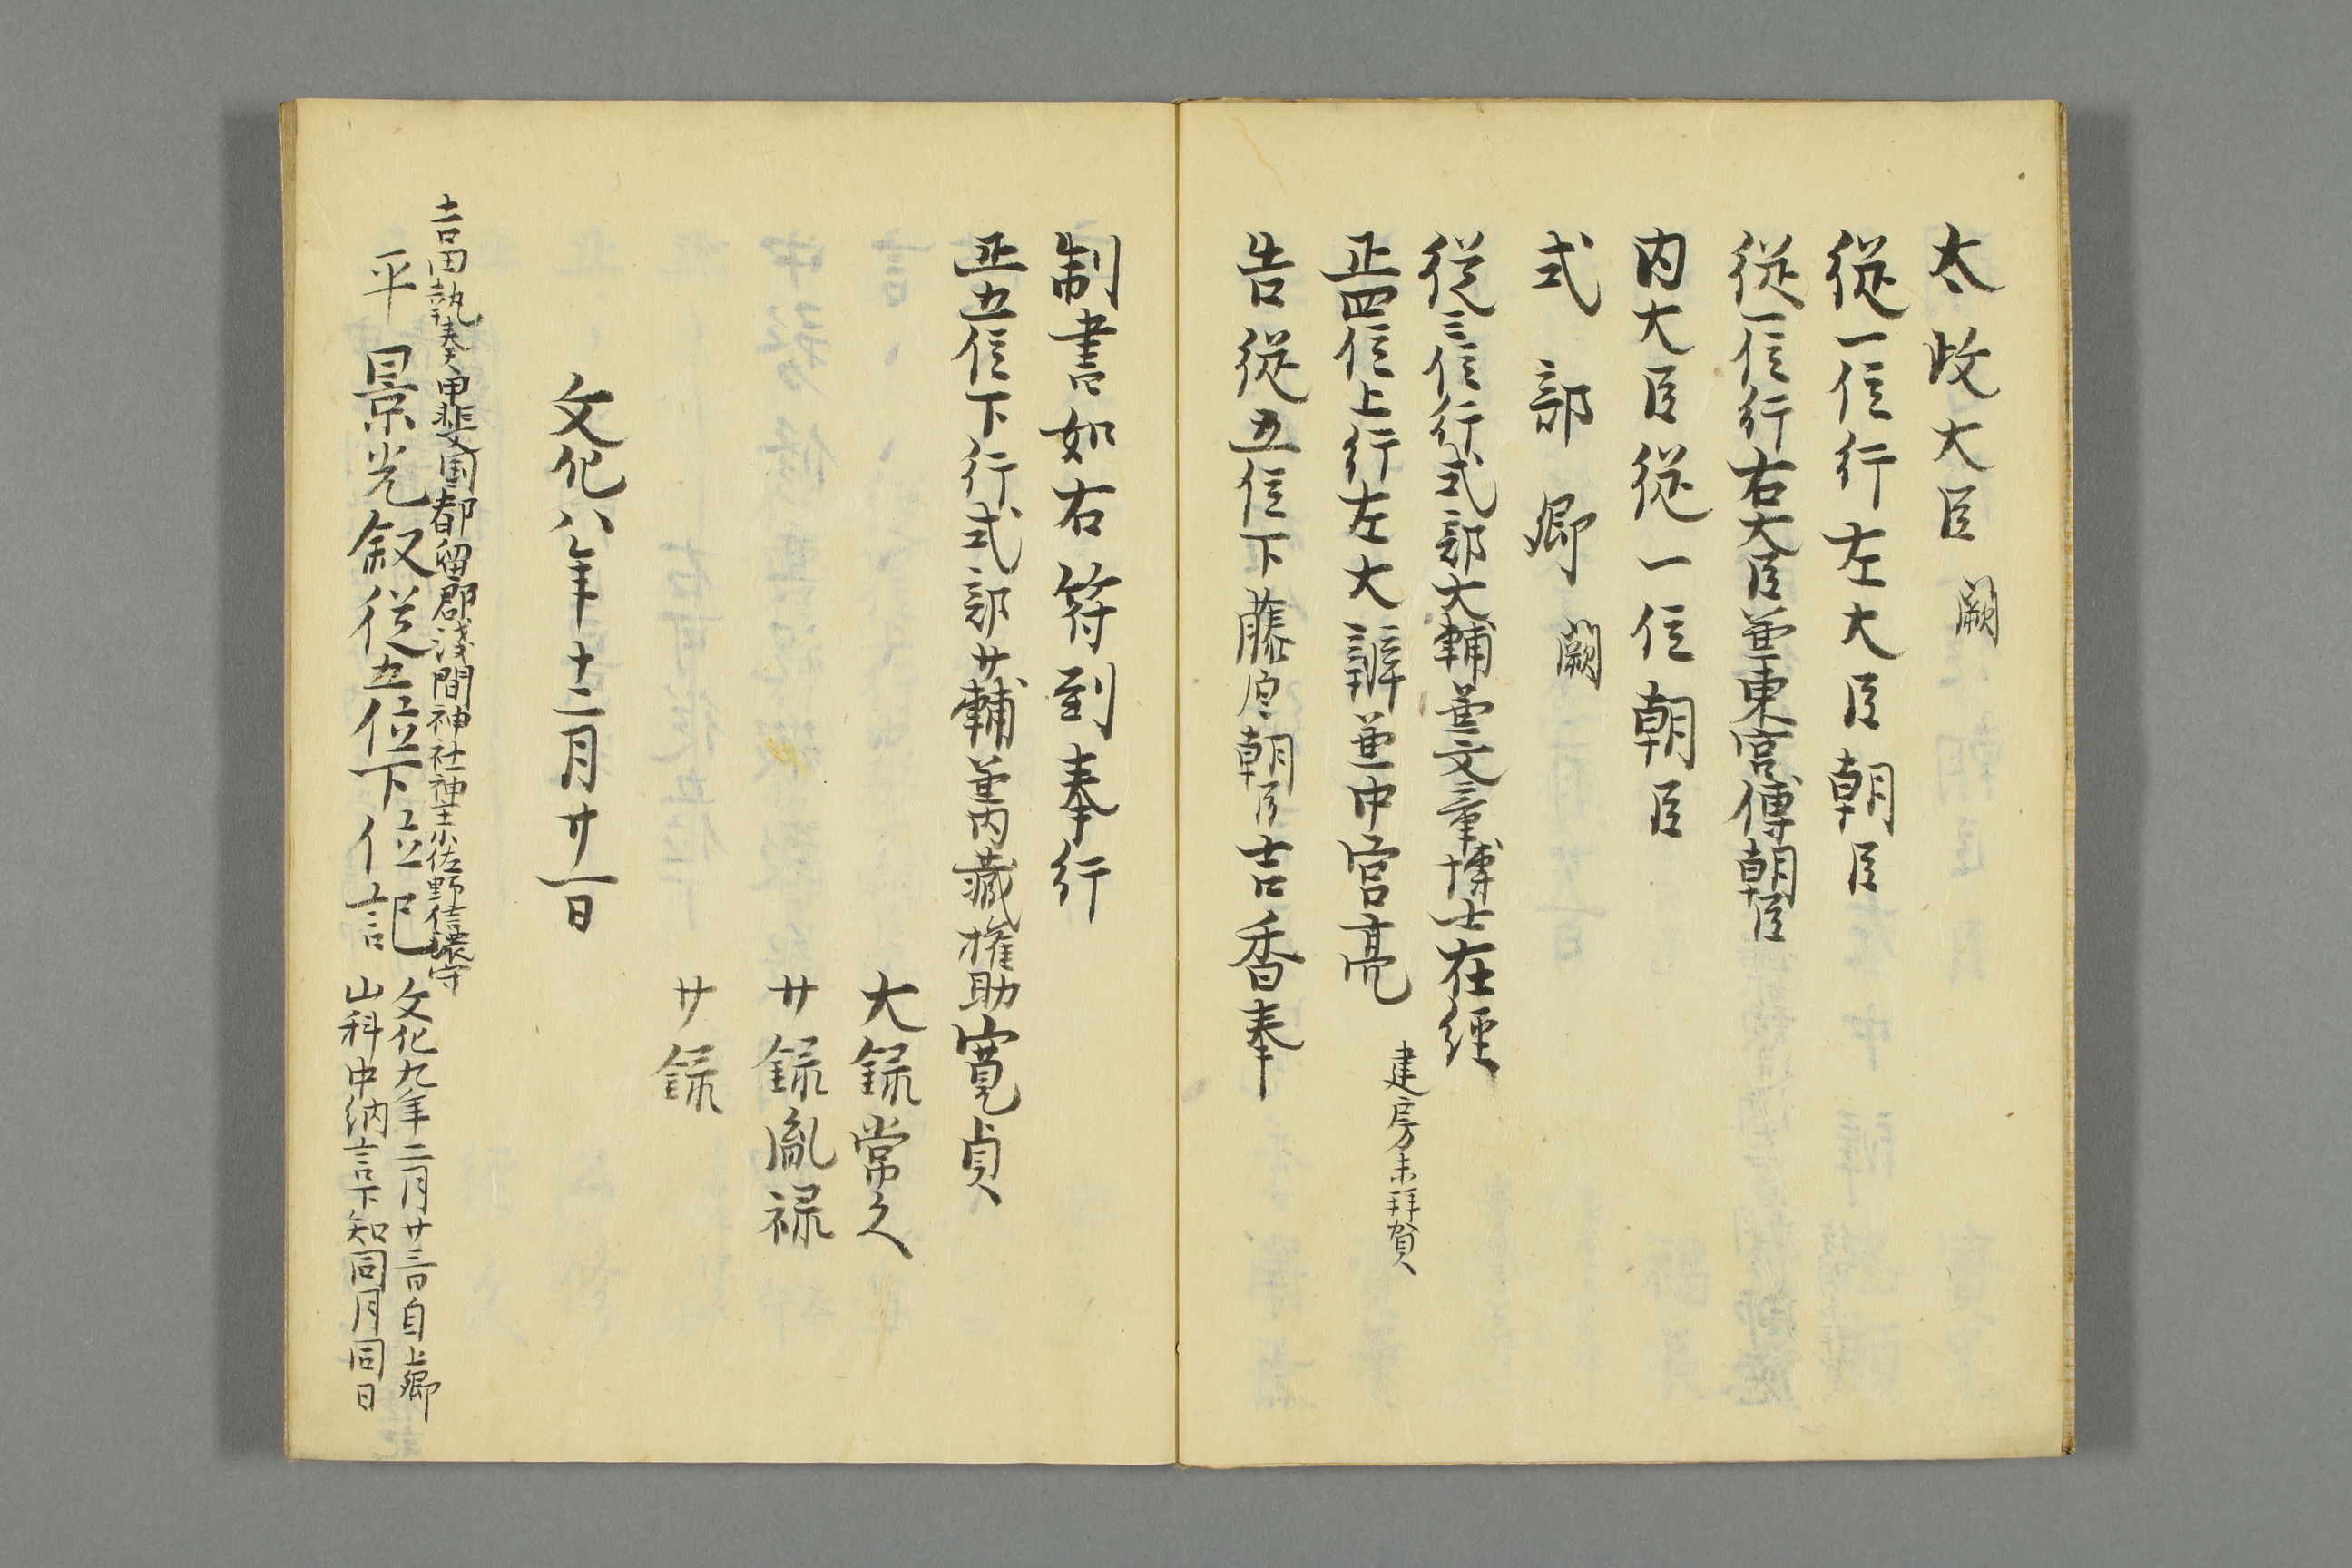 太政大臣 闕
従一位行左大臣朝臣
従一位行右大臣兼東宮傅朝臣
内大臣従一位朝臣
式部卿 闕
従三位行式部大輔兼文章博士在経
正四位上行左大辨兼中宮亮 建房未拝賀
告従五位下藤原朝臣吉香奉
制書如右符到奉行
正五位下行式部少輔兼内蔵権助寛貞
大録常久
少録胤禄
少録
文化八年十二月廿一日
吉田執奏甲斐国都留郡浅間神社神主小佐野信濃守
平景光叙従五位下位記
文化九年二月廿三日自上卿
山科中納言下知同月同日